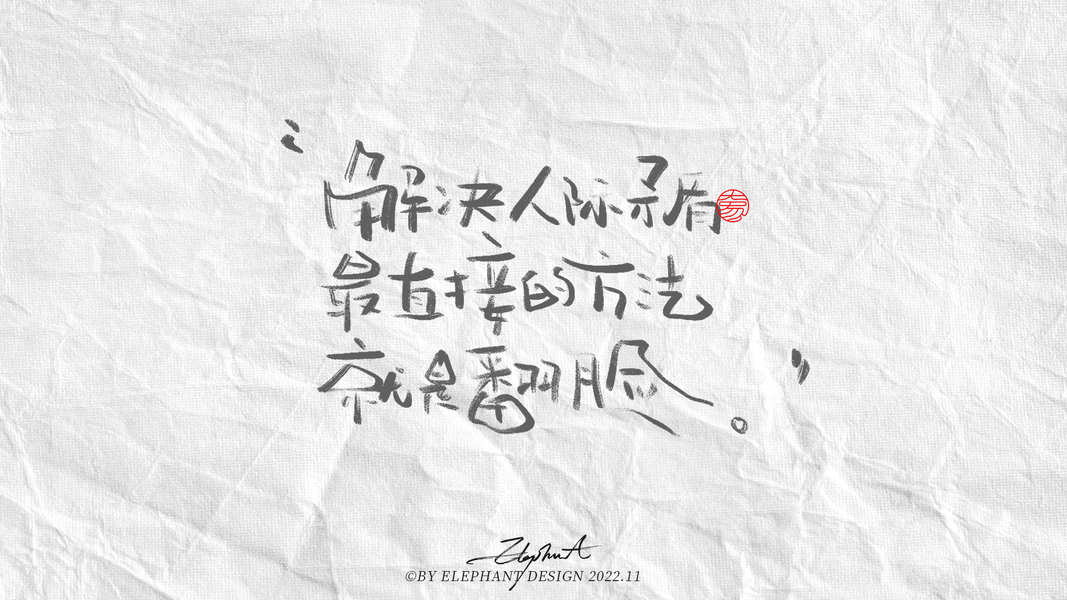 “解决人际矛盾
最直接的方法
就是翻脸。”
Elephant
©BY ELEPHANT DESIGN 2022.11